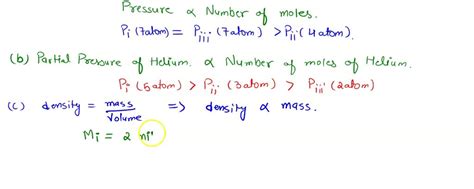 Pressure α Number of moles.
Pi (7atom) = Piii (7atom) > Pii (4 atom).
(b) Partial Pressure of Helium. α Number of moles of Helium.
Pi (5atom) > Pii (3atom) > Piii (2atom)
(c) density = mass/Volume => density α mass.
Mi = 2 ni